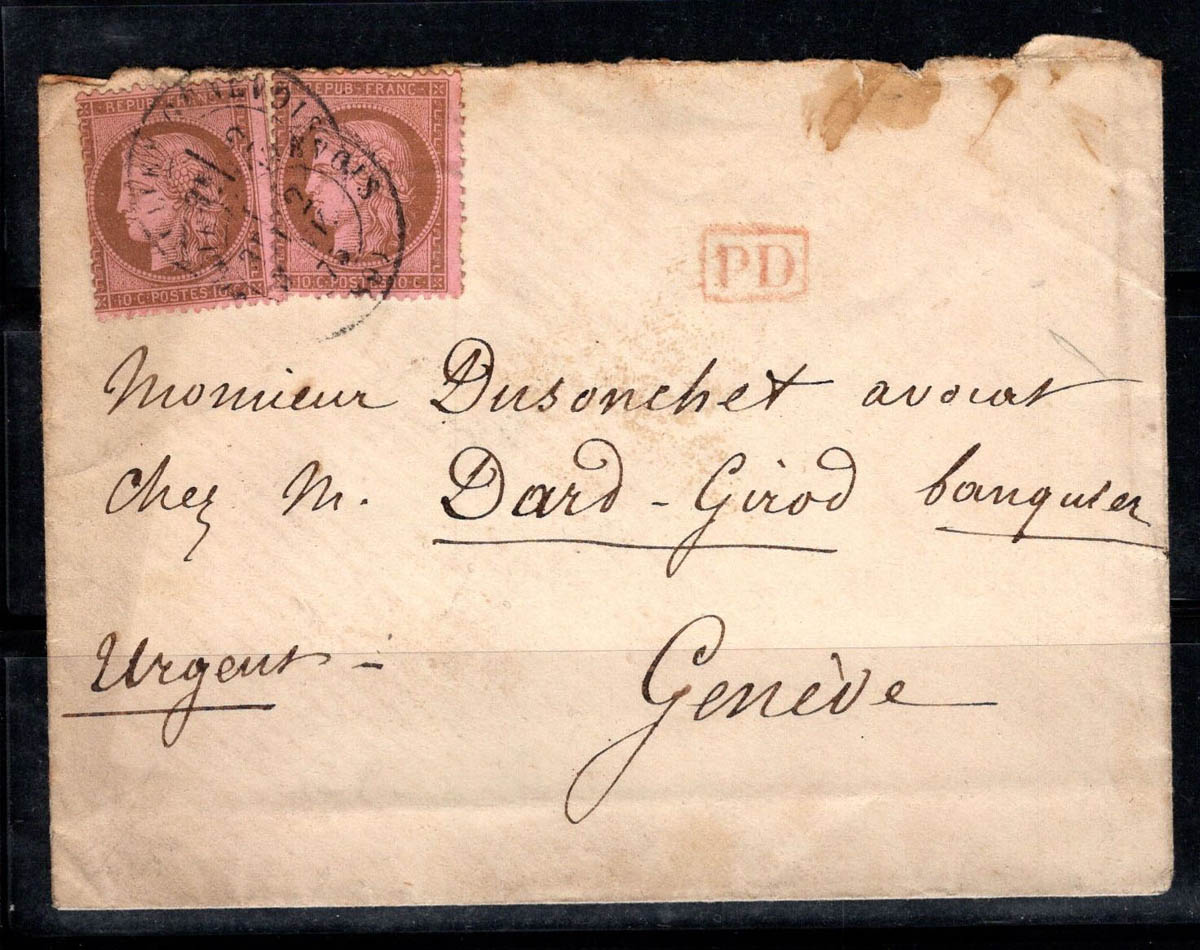 REPUB FRANC
REPUB-FRANC
10 C·POSTES 10 C
10 C·POSTES 10 C
GENEVOIS
PD
Monsieur Dusonchet avocat
chez M. Dard-Girod banquier
Urgent -
Genève